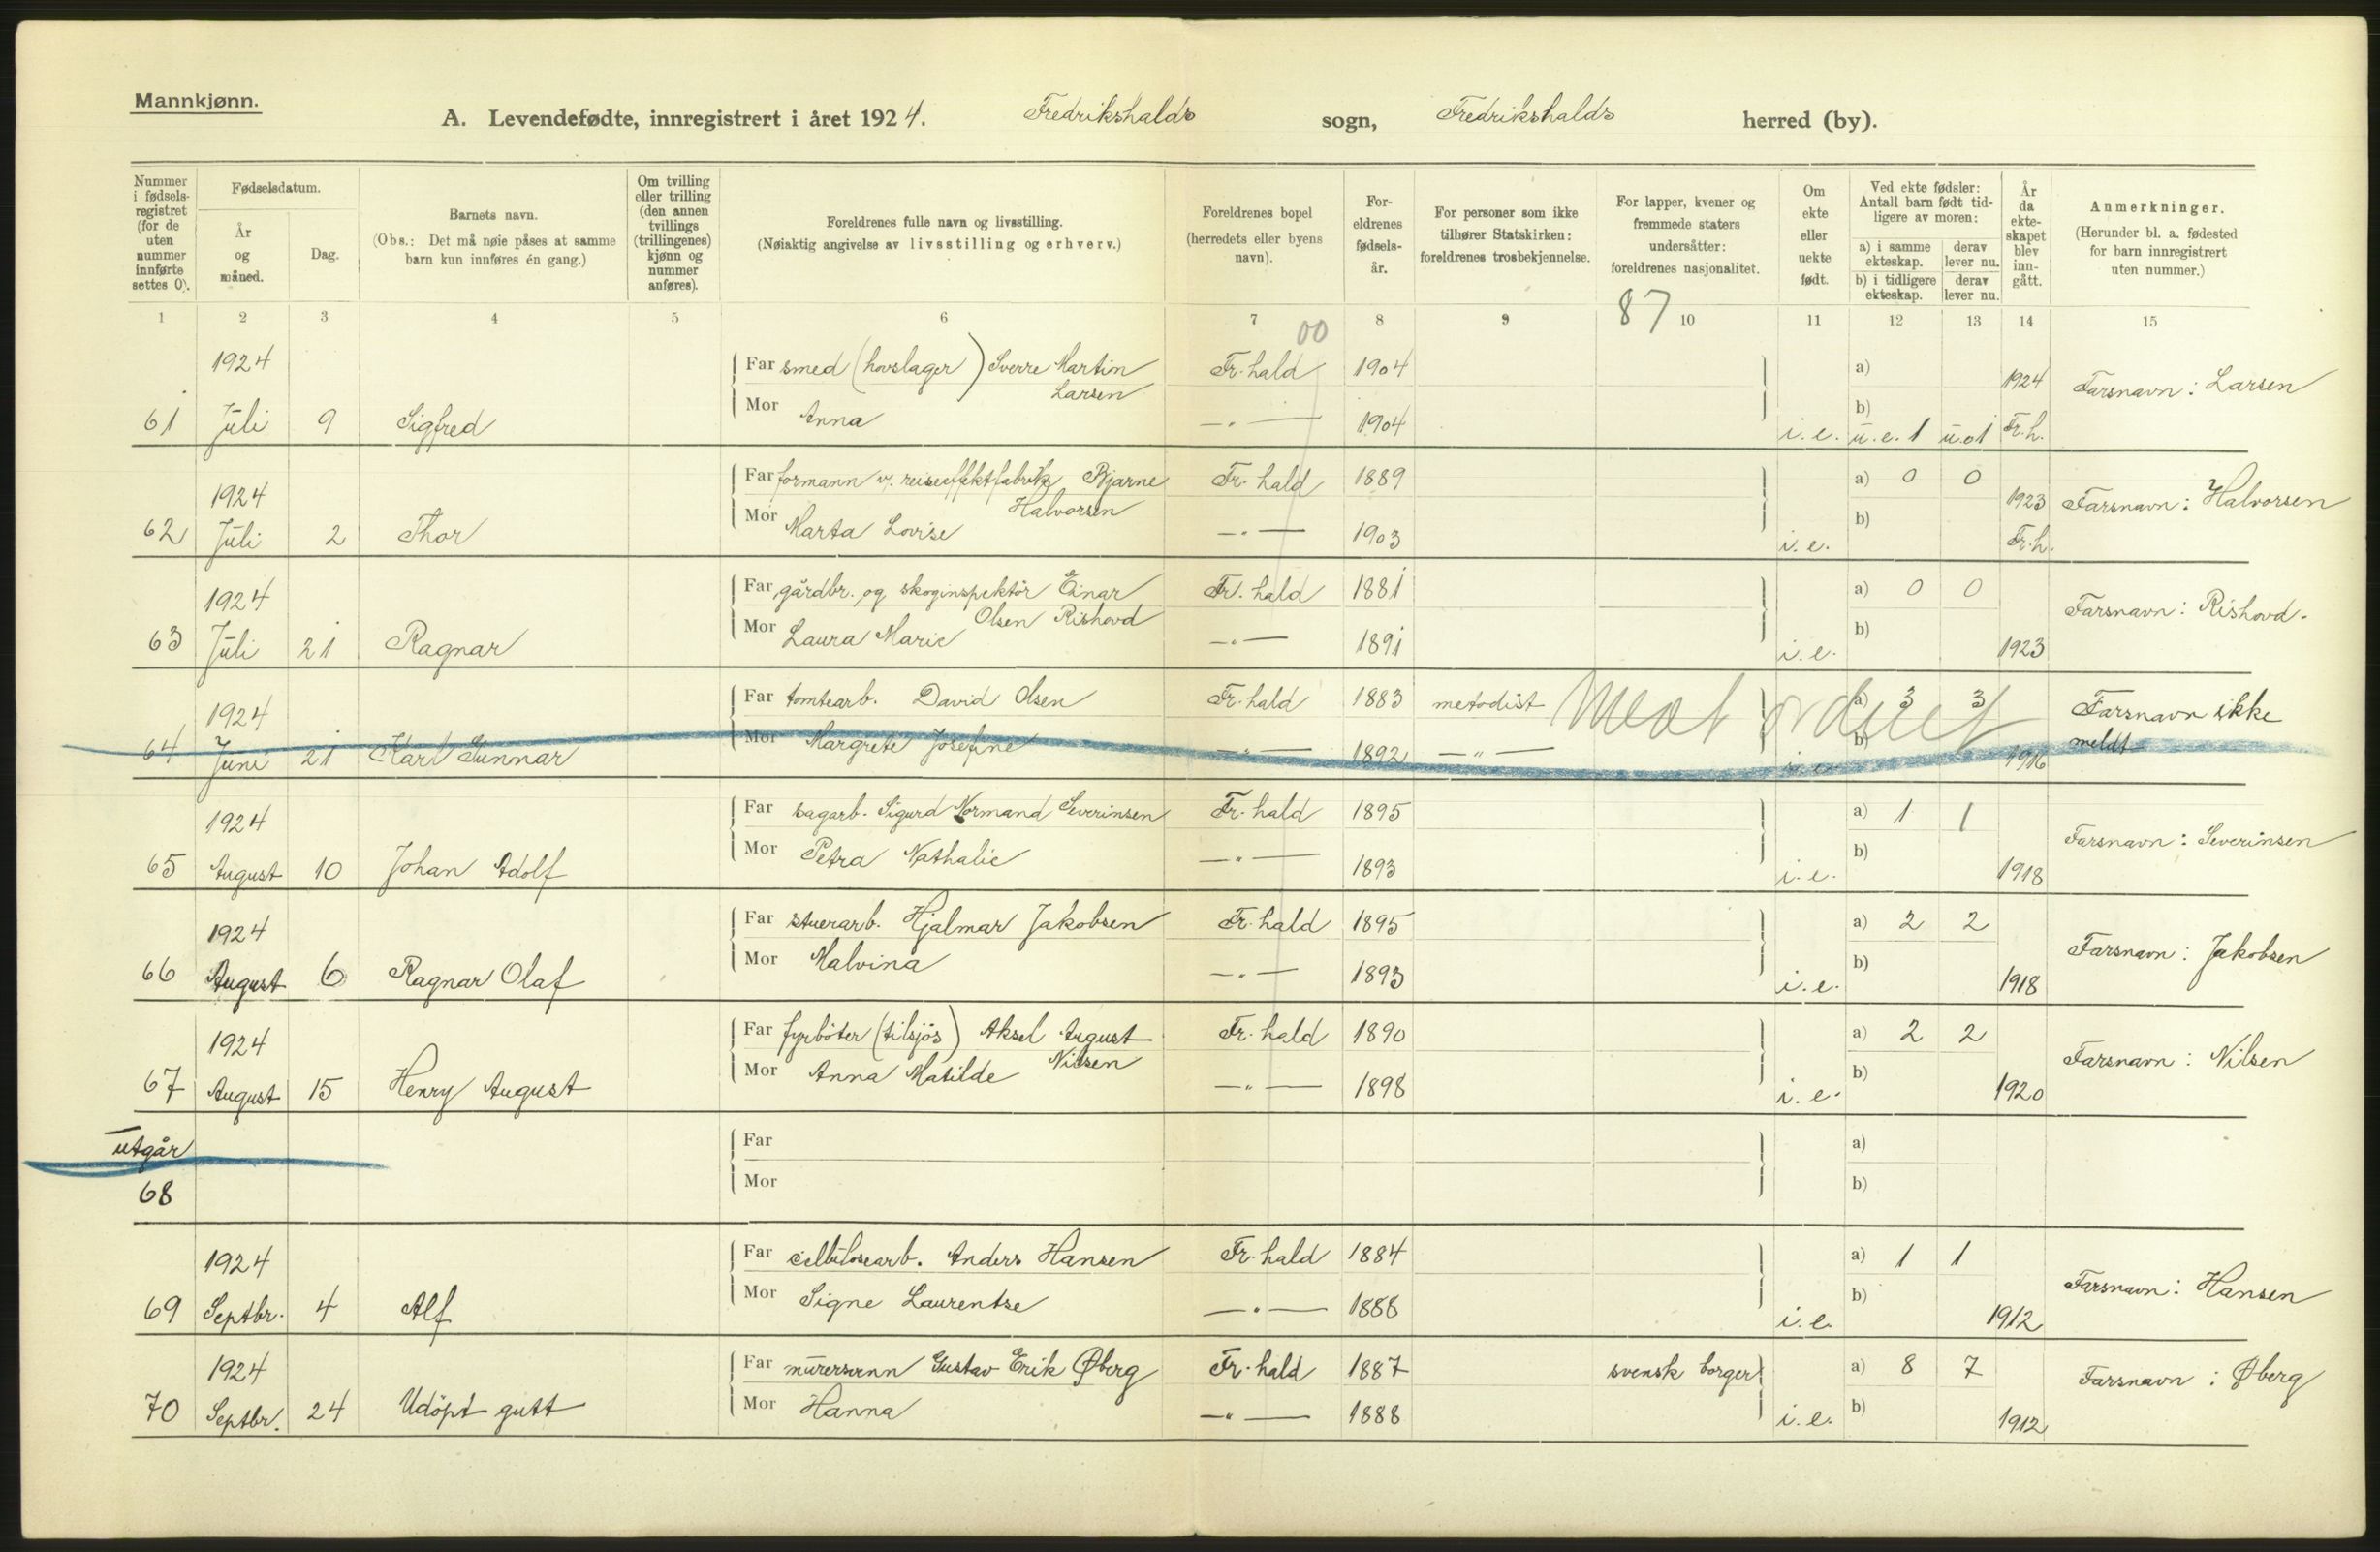 Mannkjønn.
A. Levendefødte, innregistrert i året 1924. Fredrikshalds sogn, Fredrikshalds herred (by).
Nummer i fødselsregistret (for de uten nummer innførte settes 0).
Fødselsdatum.
År og måned.
Dag.
Barnets navn.
(Obs.: Det må nøie påses at samme barn kun innføres én gang.)
Om tvilling eller trilling (den annen tvillings (trillingenes) kjønn og nummer anføres).
Foreldrenes fulle navn og livsstilling.
(Nøiaktig angivelse av livsstilling og erhverv.)
Foreldrenes bopel (herredets eller byens navn).
Foreldrenes fødselsår.
For personer som ikke tilhører Statskirken: foreldrenes trosbekjennelse.
For lapper, kvener og fremmede staters undersåtter: foreldrenes nasjonalitet.
Om ekte eller uekte født.
Ved ekte fødsler: Antall barn født tidligere av moren:
a) i samme ekteskap. derav lever nu.
b) i tidligere ekteskap. derav lever nu.
År da ekteskapet blev inngått.
Anmerkninger.
(Herunder bl. a. fødested for barn innregistrert uten nummer.)
1 2 3 4 5 6 7 8 9 10 11 12 13 14 15
00 87
1924 Far smed (hovslager) Sverre Martin Larsen Fr.hald 1904 a) 1924 Farsnavn: Larsen
61 Juli 9 Sigfred Mor Anna —"— 1904 i.e. b) u.e. 1 u.o1 Fr.h.
1924 Far formann v. reiseeffektfabrik Bjarne Halvorsen Fr.hald 1889 a) 0 0 1923 Farsnavn: Halvorsen
62 Juli 2 Thor Mor Marta Lovise —"— 1903 i.e. b) Fr.h.
1924 Far gårdbr. og skoginspektör Einar Olsen Rishovd Fr.hald 1881 a) 0 0 Farsnavn: Rishovd.
63 Juli 21 Ragnar Mor Laura Marie —"— 1891 i.e. b) 1923
1924 Far tomtearb. David Olsen Fr.hald 1883 metodist a) 3 3 Farsnavn ikke meldt
64 Juni 21 Karl Gunnar Mor Margrete Josefine —"— 1892 —"— i.e. b) 1916
1924 Far sagarb. Sigurd Normand Severinsen Fr.hald 1895 a) 1 1 Farsnavn: Severinsen
65 August 10 Johan Adolf Mor Petra Nathalie —"— 1893 i.e. b) 1918
1924 Far stuerarb. Hjalmar Jakobsen Fr.hald 1895 a) 2 2 Farsnavn: Jakobsen
66 August 6 Ragnar Olaf Mor Malvina —"— 1893 i.e. b) 1918
1924 Far fyrböter (tilsjös) Aksel August Nilsen Fr.hald 1890 a) 2 2 Farsnavn: Nilsen
67 August 15 Henry August Mor Anna Matilde —"— 1898 i.e. b) 1920
utgår Far a)
68 Mor b)
1924 Far cellulosearb. Anders Hansen Fr.hald 1884 a) 1 1 Farsnavn: Hansen
69 Septbr. 4 Alf Mor Signe Laurentse —"— 1888 i.e. b) 1912
1924 Far murersvenn Gustav Erik Øberg Fr.hald 1887 svensk borger a) 8 7 Farsnavn: Øberg
70 Septbr. 24 Udöpt gutt Mor Hanna —"— 1888 i.e. b) 1912